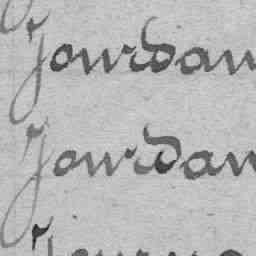 Jourdan
Jourdan